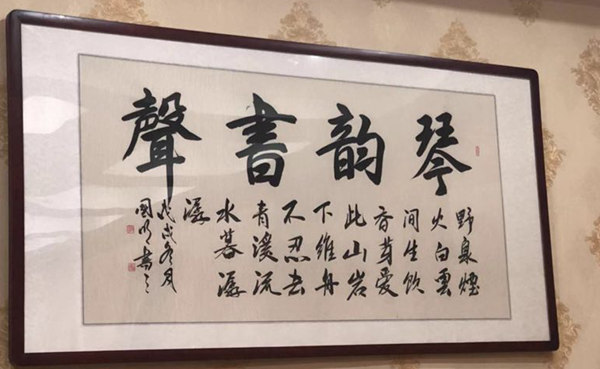 琴韵書聲
野泉煙
火白雲
間坐飲
香茶愛
此山岩
下維舟
不忍去
青溪流
水暮潺
潺
戊戌冬月
國書之